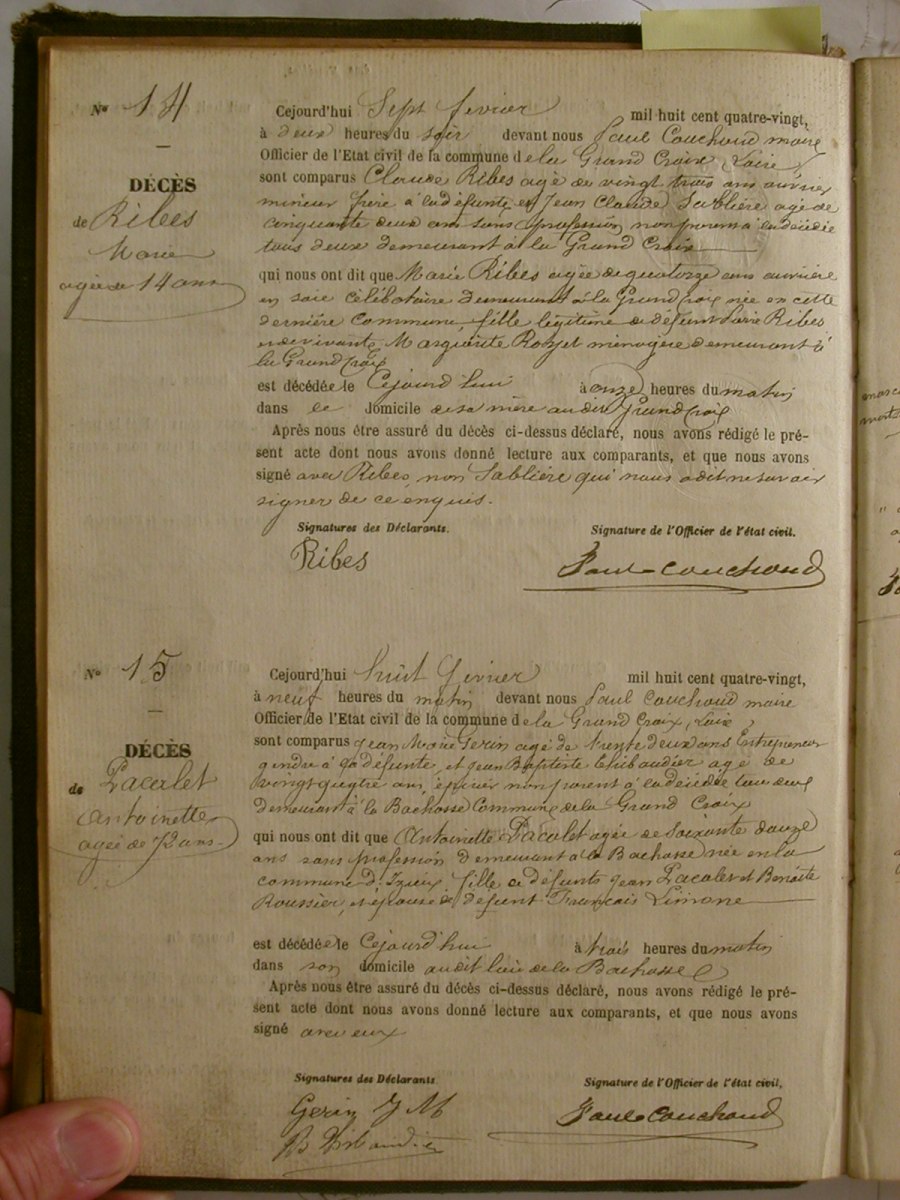 No 14
DÉCÈS
de Ribes
Marie
agée de 14 ans
Cejourd'hui Sept fevrier mil huit cent quatre-vingt,
à deux heures du soir devant nous Paul Couchoud maire
Officier de l'Etat civil de la commune de la Grand Croix, Loire,
sont comparus Claude Ribes agé de vingt trois ans ouvrier
mineur frère à la défunte et Jean Claude Sablière agé de
cinquante deux ans sans profession non parent à la décédée
tous deux demeurant à la Grand Croix
qui nous ont dit que Marie Ribes agée de quatorze ans ouvrière
en soie célibataire demeurant à la Grand Croix née en cette
dernière commune, fille légitime de défunt Ribes
et de vivante Marguerite ménagère demeurant à
la Grand Croix
est décédée le Cejourd'hui à onze heures du matin
dans le domicile de sa mère au dit Grand Croix
Après nous être assuré du décès ci-dessus déclaré, nous avons rédigé le pré-
sent acte dont nous avons donné lecture aux comparants, et que nous avons
signé avec Ribes, non Sablière qui nous a dit ne savoir
signer de ce enquis.
Signatures des Déclarants.
Signature de l'Officier de l'état civil.
Ribes
Paul Couchoud
No 15
DÉCÈS
de Pacalet
Antoinette
agée de 72 ans
Cejourd'hui huit fevrier mil huit cent quatre-vingt,
à neuf heures du matin devant nous Paul Couchoud maire
Officier de l'Etat civil de la commune de la Grand Croix, Loire,
sont comparus Jean Marie Gerin agé de trente deux ans Entrepreneur
gendre à la défunte, et Jean Baptiste Thibaudier agé de
vingt quatre ans, épicier non parent à la décédée tous deux
demeurant à la Bachasse Commune de la Grand Croix
qui nous ont dit que Antoinette Pacalet agée de Soixante douze
ans sans profession demeurant à la Bachasse née en la
commune d'Izieux fille de défunts Jean Pacalet et Benoite
Roussier, et épouse de défunt François Limone
est décédée le Cejourd'hui à trois heures du matin
dans son domicile au dit lieu de la Bachasse
Après nous être assuré du décès ci-dessus déclaré, nous avons rédigé le pré-
sent acte dont nous avons donné lecture aux comparants, et que nous avons
signé avec eux
Signatures des Déclarants
Signature de l'Officier de l'état civil,
Gerin J M
B Thibaudier
Paul Couchoud